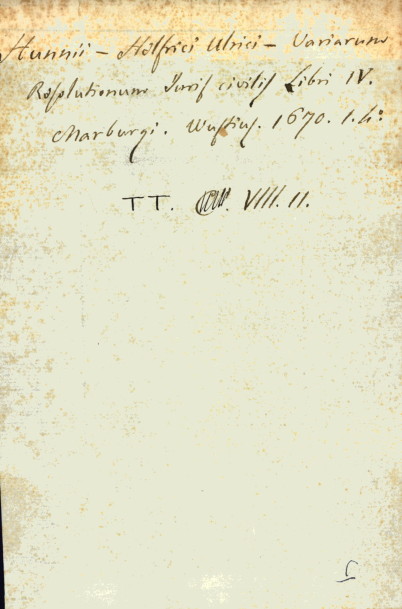 Hunnii - Helfrici Ulrici - Variarum
Resolutionum Juris civilis Libri IV.
Marburgi. Wustius. 1670. 1. 4º
TT. VIII. 11.